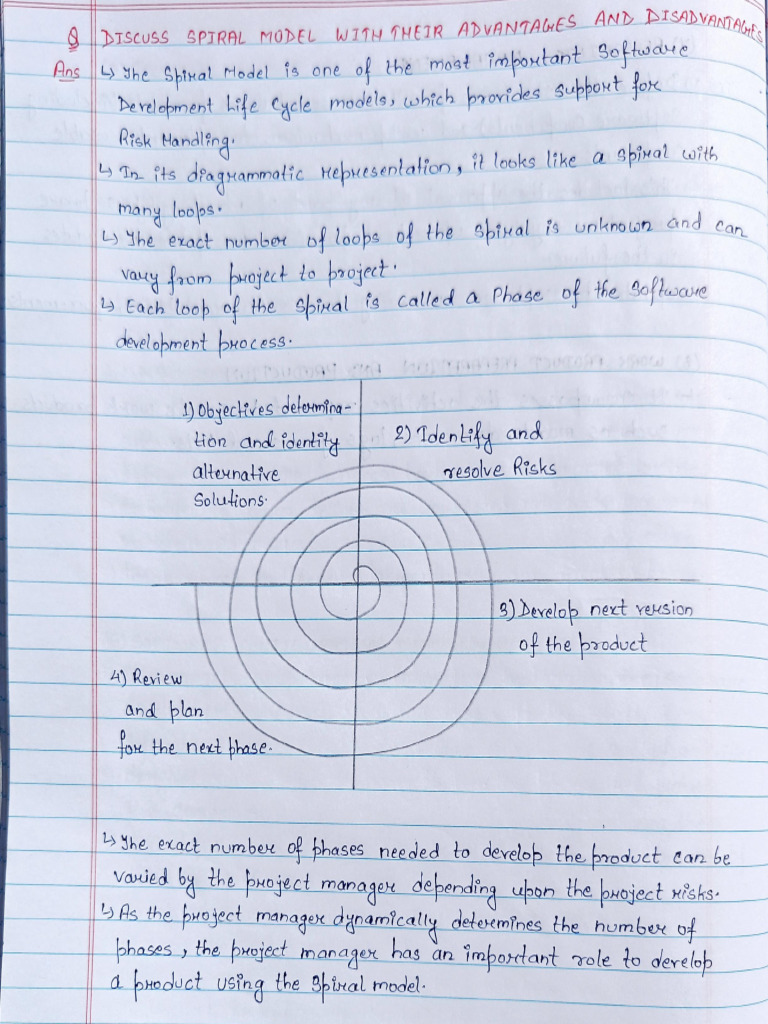 Q DISCUSS SPIRAL MODEL WITH THEIR ADVANTAGES AND DISADVANTAGES
Ans ↳ The Spiral Model is one of the most important Software
Development Life Cycle models, which provides support for
Risk Handling.
↳ In its diagrammatic representation, it looks like a spiral with
many loops.
↳ The exact number of loops of the spiral is unknown and can
vary from project to project.
↳ Each loop of the spiral is called a Phase of the Software
development process.
1) Objectives determina-
tion and identity
alternative
Solutions.
2) Identify and
resolve Risks
3) Develop next version
of the product
4) Review
and plan
for the next phase.
↳ The exact number of phases needed to develop the product can be
varied by the project manager depending upon the project risks.
↳ As the project manager dynamically determines the number of
phases, the project manager has an important role to develop
a product using the spiral model.